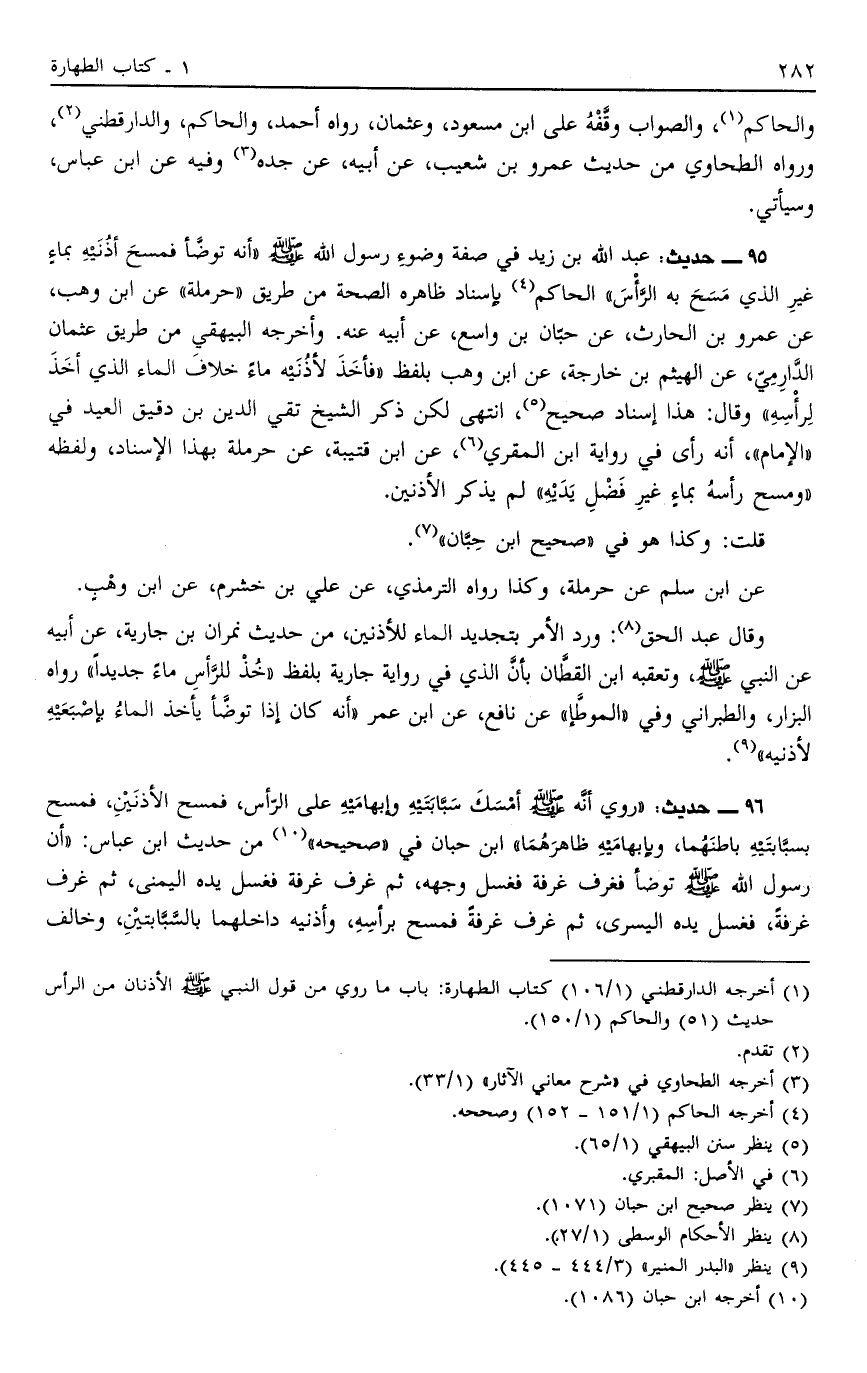 ٢٨٢
١ - كتاب الطهارة
والحاكم(١)، والصواب وقَّفْهُ على ابن مسعود، وعثمان، رواه أحمد، والحاكم، والدارقطني(٢)،
ورواه الطحاوي من حديث عمرو بن شعيب، عن أبيه، عن جده(٣) وفيه عن ابن عباس،
وسيأتي.
٩٥ ـ حديث: عبد الله بن زيد في صفة وضوءِ رسول الله ﷺ «أنه توضَّأ فمسحَ أذُنَيْهِ بماءٍ
غيرِ الذي مَسَحَ به الرَّأْسَ» الحاكم(٤) بإسناد ظاهره الصحة من طريق «حرملة» عن ابن وهب،
عن عمرو بن الحارث، عن حبّان بن واسع، عن أبيه عنه. وأخرجه البيهقي من طريق عثمان
الدَّارِمِيّ، عن الهيثم بن خارجة، عن ابن وهب بلفظ «فأخَذَ لأذُنَيْه ماءً خلافَ الماء الذي أخَذَ
لِرأْسِهِ» وقال: هذا إسناد صحيح(٥)، انتهى لكن ذكر الشيخ تقي الدين بن دقيق العيد في
«الإمام»، أنه رأى في رواية ابن المقري(٦)، عن ابن قتيبة، عن حرملة بهذا الإسناد، ولفظه
«ومسح رأسهُ بماءٍ غيرِ فَضْلِ يَدَيْهِ» لم يذكر الأذنين.
قلت: وكذا هو في «صحيح ابن حِبَّان»(٧).
عن ابن سلم عن حرملة، وكذا رواه الترمذي، عن علي بن خشرم، عن ابن وهْبٍ.
وقال عبد الحق(٨): ورد الأمر بتجديد الماء للأذنين، من حديث نمران بن جارية، عن أبيه
عن النبي ﷺ، وتعقبه ابن القطَّان بأنَّ الذي في رواية جارية بلفظ «خُذْ للرَّأسِ ماءً جديداً» رواه
البزار، والطبراني وفي «الموطَّإ» عن نافع، عن ابن عمر «أنه كان إذا توضَّأ يأخذ الماءُ بإصْبَعَيْهِ
لأذنيه»(٩).
٩٦ ـ حديث: «روي أنَّه ﷺ أمْسَكَ سَبَّابَتَيْهِ وإبهامَيْهِ على الرّأس، فمسح الأذنَيْنِ، فمسح
بسبَّابتَيْهِ باطنَهُما، وبإبهامَيْهِ ظاهرَهُمَا» ابن حبان في «صحيحه»(١٠) من حديث ابن عباس: «أن
رسول الله ﷺ توضأ فغرف غرفة فغسل وجهه، ثم غرف غرفة فغسل يده اليمنى، ثم غرف
غرفةً، فغسل يده اليسرى، ثم غرف غرفةً فمسح برأسِهِ، وأذنيه داخلهما بالسَّبَّابتيْنِ، وخالف
(١) أخرجه الدارقطني (١٠٦/١) كتاب الطهارة: باب ما روي من قول النبي ﷺ الأذنان من الرأس
حديث (٥١) والحاكم (١٥٠/١).
(٢) تقدم.
(٣) أخرجه الطحاوي في «شرح معاني الآثار» (٣٣/١).
(٤) أخرجه الحاكم (١٥١/١ - ١٥٢) وصححه.
(٥) ينظر سنن البيهقي (٦٥/١).
(٦) في الأصل: المقبري.
(٧) ينظر صحيح ابن حبان (١٠٧١).
(٨) ينظر الأحكام الوسطى (٢٧/١).
(٩) ينظر «البدر المنير» (٤٤٤/٣ - ٤٤٥).
(١٠) أخرجه ابن حبان (١٠٨٦).